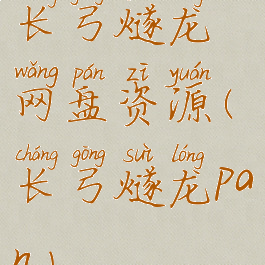 长弓燧龙
wǎng pán zī yuán
网盘资源(
cháng gōng suì lóng
长弓燧龙pa
n)